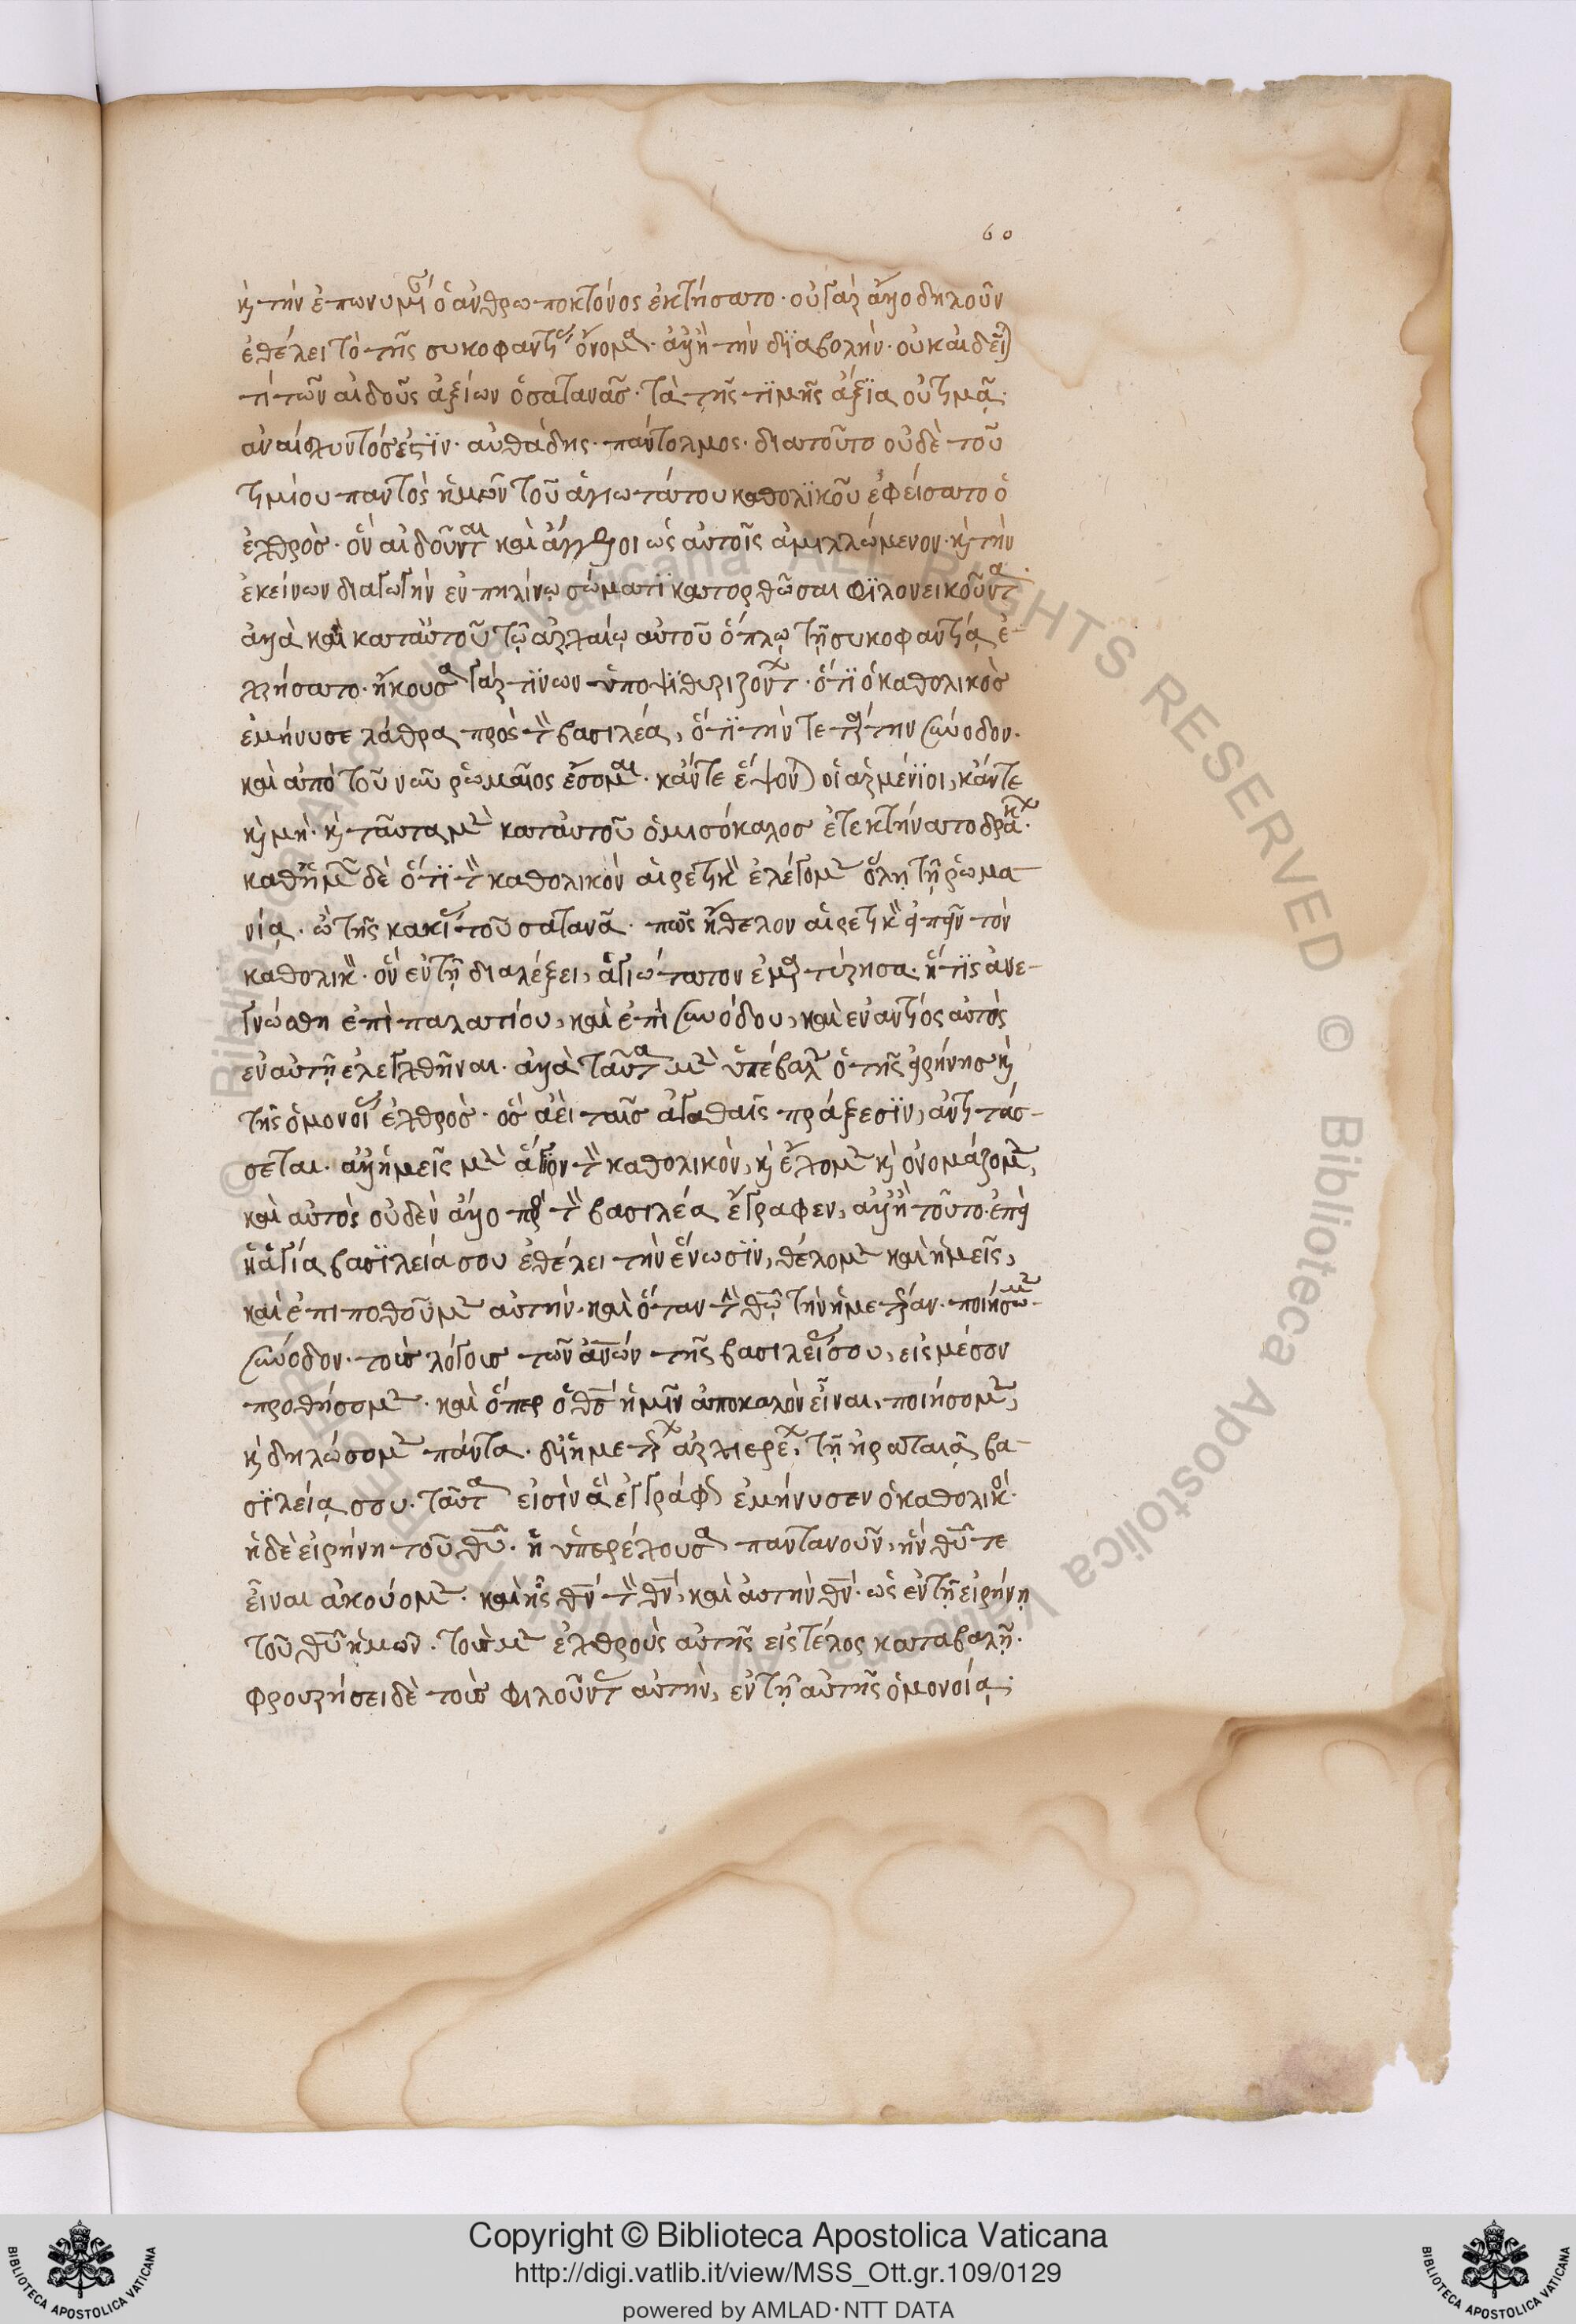 60
κ τὴν ἐπωνυμί ὁ ἀνθρωποκτόνος ἐκτήσατο· οὐ γὰρ ἄλλο δηλοῦν
ἐθέλει τὸ τῆς συκοφαντ ὄνομα· ἀλλ' ἢ τὴν διαβολήν· οὐκ αἰδεῖ
τι τῶν αἰδοῦς ἀξίων ὁ σατανᾶσ· τὰ τῆς τιμῆς ἄξια οὐ τιμᾷ·
ἀναίσχυντόσ ἐστϊν· αὐθάδης· πάντολμος· διατοῦτο οὐδὲ τοῦ
τιμίου παντὸς ἡμῶν τοῦ ἁγιωτάτου καθολϊκοῦ ἐφείσατο ὁ
ἐχθρὸσ· ὃν αἰδοῦνται καὶ ἄγγελοι ὡς αὐτοῖς ἁμιλλώμενον· κ τὴν
ἐκείνων διαγωγὴν ἐν πηλίνῳ σώματϊ κατορθῶσαι φϊλονεικοῦντα·
ἀλλὰ καὶ κατ' αὐτοῦ τῷ ἀρχαίῳ αὐτοῦ ὅπλῳ τῇ συκοφαντίᾳ ἐ-
χρήσατο· ἤκουσα γάρ τϊνων ὑποψϊθυριζόντ· ὅτϊ ὁ καθολικὸσ
ἐμήνυσε λάθρα πρὸς τὸν βασιλέα, ὅτϊ τήν τε τετάρτην σύνοδον·
καὶ ἀπὸ τοῦ νῦν ῥωμαῖος ἔσομαι· κἄντε ἕψον οἱ ἀρμένϊοι, κἄντε
κ μή· κ ταῦτα μὲν κατ' αὐτοῦ ὁ μισόκαλοσ ἐτεκτήνατο δρά·
καθ' ἡμῶν δὲ ὅτϊ τὸν καθολικὸν αἱρετικὸν ἐλέγομεν ὅλῃ τῇ ῥωμα-
νίᾳ. ὢ τῆς κακί τοῦ σατανᾶ· πῶς ἤθελον αἱρετικὸν εἰπεῖν τὸν
καθολικ· ὃν ἐν τῇ διαλέξει, ἁγιώτατον ἐμαρτύρησα· ἥτϊς ἀνε-
γνώσθη ἐπὶ παλατίου, καὶ ἐπὶ συνόδου, καὶ ἐναντίος αὐτὸς
ἐν αὐτῇ ἐλεγχθῆναι· ἀλλὰ ταῦτα μὲν ὑπέβαλ ὁ τῆς εἰρήνησ κ
τῆς ὁμονοί ἐχθρὸσ· ὃσ ἀεὶ ταῖσ ἀγαθαῖς πράξεσϊν, ἀντιτάσ-
σεται· ἀλλ' ἡμεῖς μὲν ἅγιον τὸν καθολικὸν, κ ἔχομεν κ ὀνομάζομεν,
καὶ αὐτὸς οὐδὲν ἄλλο πρὸς τὸν βασιλέα ἔγραφεν, ἀλλ' ἢ τοῦτο· ἐπεὶ
ἡ ἁγία βασϊλεία σου ἐθέλει τὴν ἕνωσϊν, θέλομεν καὶ ἡμεῖς,
καὶ ἐπιποθοῦμεν αὐτήν· καὶ ὅταν θῶ τὴν ἡμετέραν· ποιήσωμεν
σύνοδον· τοὺσ λόγουσ τῶν ἀνῶν τῆς βασιλεί σου, εἰς μέσον
προθήσομεν· καὶ ὅπερ ὁ θς ἡμῖν ἀποκαλ εἶναι, ποιήσομεν,
κ δηλώσομεν πάντα· δι' ἡμετέρ ἀρχιερέ, τῇ κραταιᾷ βα-
σϊλείᾳ σου· ταῦτα εἰσὶν ἃ ἐγγράφ ἐμήνυσεν ὁ καθολικό·
ἡ δὲ εἰρήνη τοῦ θυ· ἡ ὑπερέχουσα πάντα νοῦν, ἣν θυ τε
εἶναι ἀκούομεν· καὶ ἧς θν τὸν θν, καὶ αὐτὴν θν· ὡς ἐν τῇ εἰρήνῃ
τοῦ θυ ἡμῶν· τοὺσ μὲν ἐχθροὺς αὐτῆς εἰς τέλος καταβαλῇ·
φρουρήσει δὲ τοὺσ φιλοῦντ αὐτὴν, ἐν τῇ αὐτῆς ὁμονοίᾳ·
© Biblioteca Apostolica Vaticana ALL RIGHTS RESERVED
Copyright © Biblioteca Apostolica Vaticana
http://digi.vatlib.it/view/MSS_Ott.gr.109/0129
powered by AMLAD·NTT DATA
BIBLIOTECA APOSTOLICA VATICANA
BIBLIOTECA APOSTOLICA VATICANA